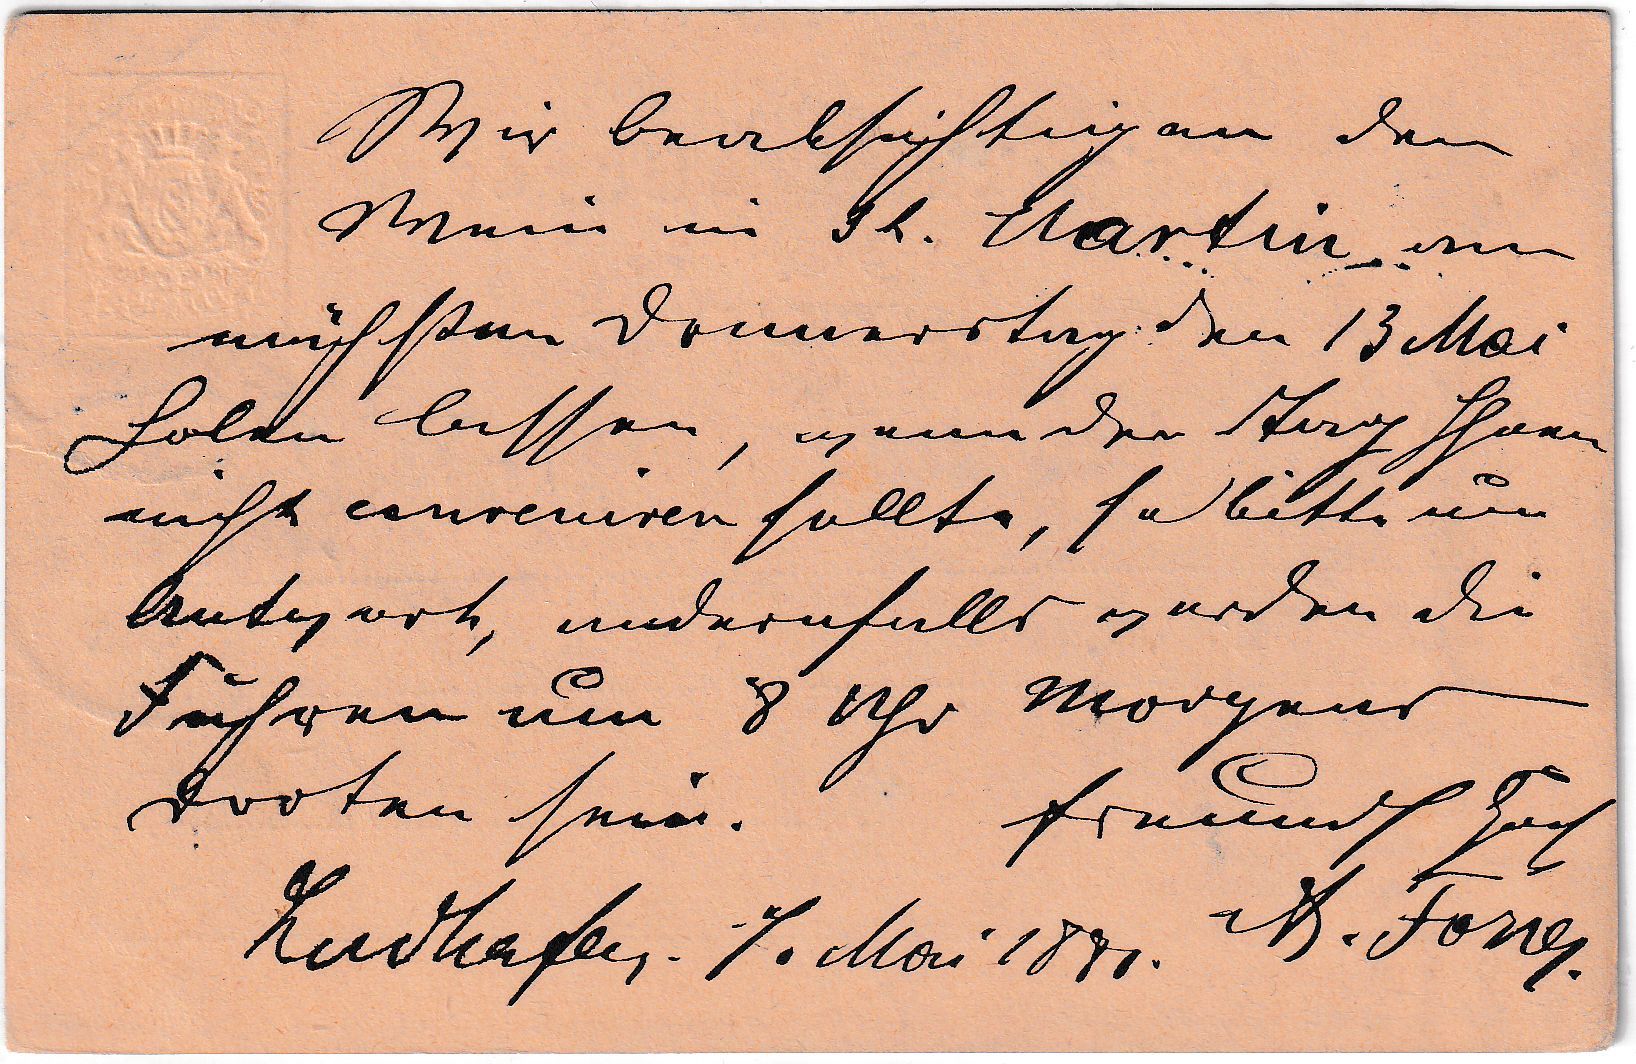 Wir beabsichtigen den
Wein in St. Martin am
nächsten Donnerstag den 13 Mai
holen lassen, wenn der Tag Ihnen
nicht conveniren sollte, so bitte um
Antwort, andernfalls werden die
Fuhren um 8 Uhr Morgens
dorten sein. freundl
7. Mai